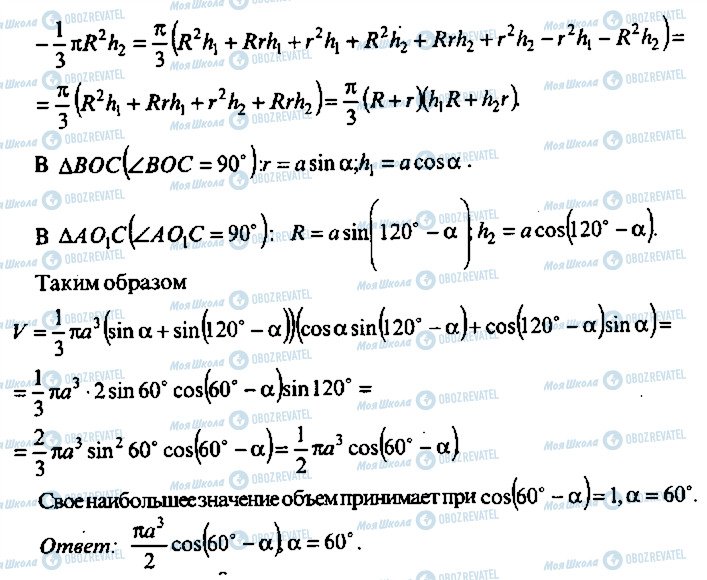 −1/3 πR²h₂ = π/3 (R²h₁ + Rrh₁ + r²h₁ + R²h₂ + Rrh₂ + r²h₂ − r²h₁ − R²h₂) =
= π/3 (R²h₁ + Rrh₁ + r²h₂ + Rrh₂) = π/3 (R + r)(h₁R + h₂r).
В ΔBOC(∠BOC = 90°): r = a sin α; h₁ = a cos α .
В ΔAO₁C(∠AO₁C = 90°): R = a sin(120° − α); h₂ = a cos(120° − α).
Таким образом
V = 1/3 πa³(sin α + sin(120° − α))(cos α sin(120° − α) + cos(120° − α)sin α) =
= 1/3 πa³ · 2 sin 60° cos(60° − α)sin 120° =
= 2/3 πa³ sin² 60° cos(60° − α) = 1/2 πa³ cos(60° − α)
Свое наибольшее значение объем принимает при cos(60° − α) = 1, α = 60°.
Ответ: πa³/2 cos(60° − α); α = 60° .
Моя Школа OBOZREVATEL